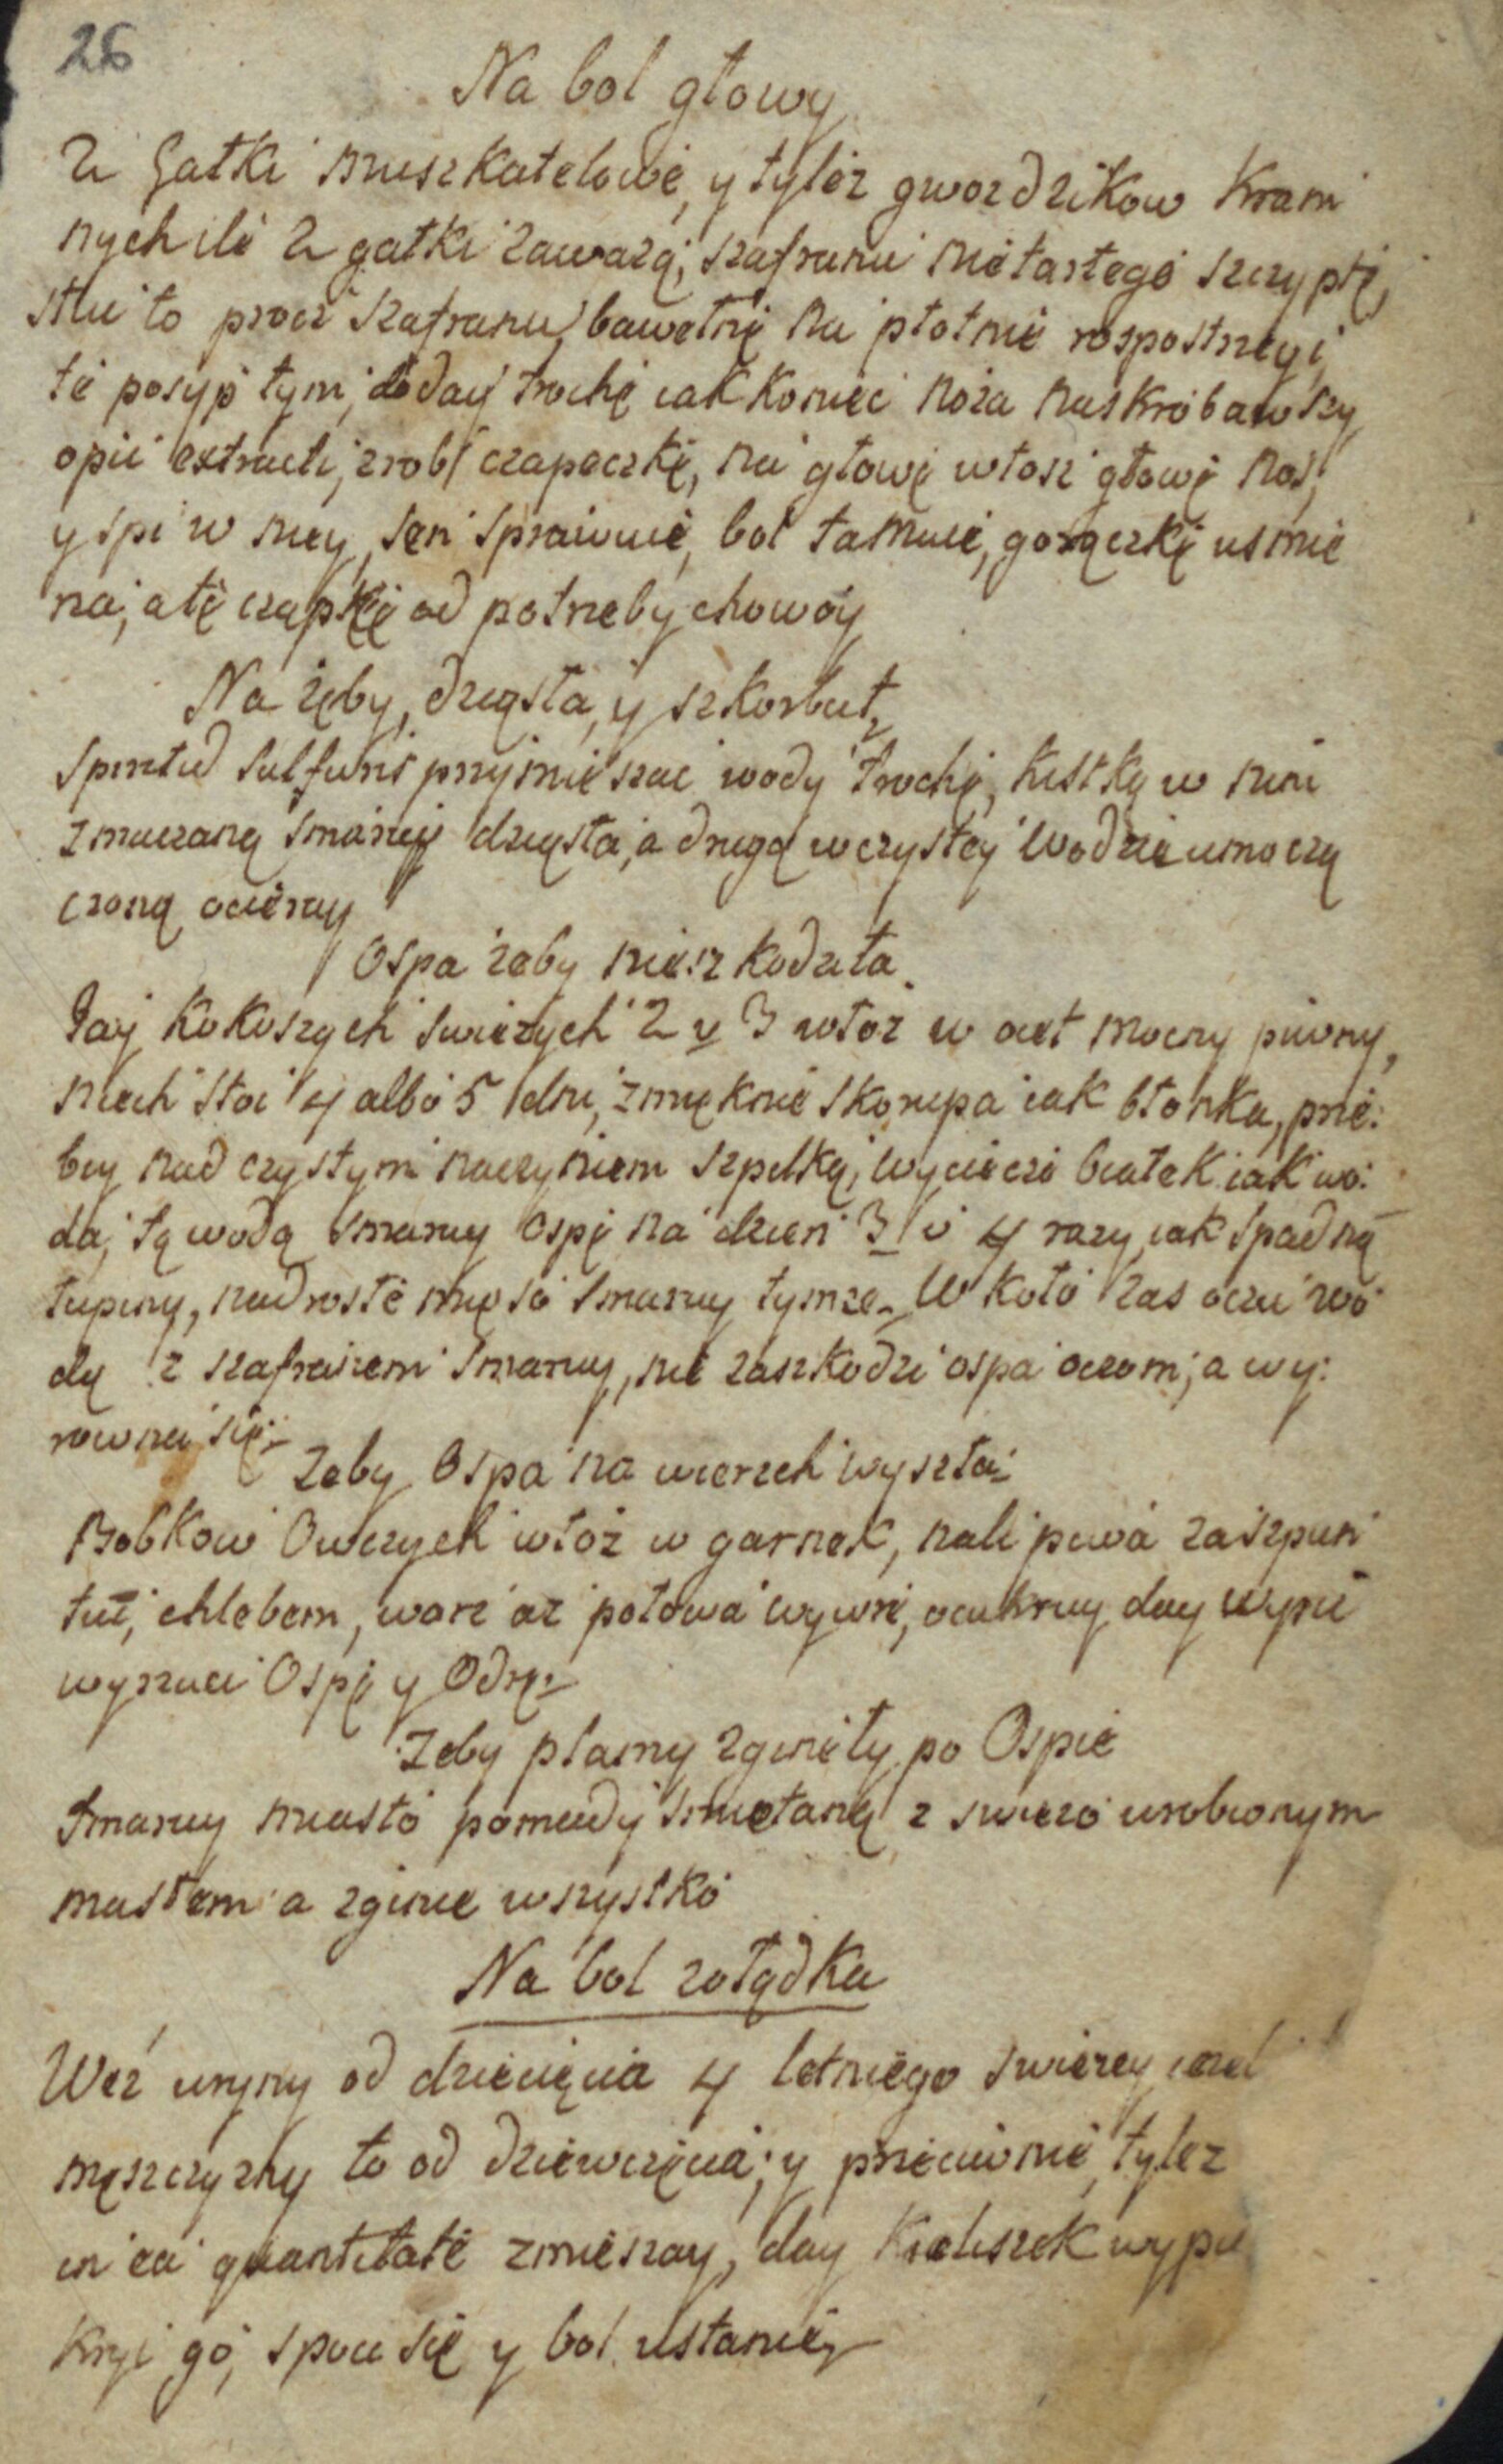 26
Na bol głowy
2 Gałki muszkatelowe, y tyleż gwozdzikow kram
nych ile 2 gałki zawazą, szafranu nietartego szczyptę,
stłu to procz szafranu, bawełnę na płotnie rospostrzyi
te posyp tym, doday trochę iak koniec noża naskrobawszy
opii extracti, zrob czapeczkę, na głowę włosz głowę nos,
y spi w niey, sen sprawuie, bol tamuie, gorączkę usmie
rza, a tę czapkę od potrzeby choway
Na zęby, dzięsła, y szkorbut,
Spiritus Sulfuris przymieszac wody trochę, kistkę w nim
zmaczaną smaruy dzięsła, a drugą w czystey wodzie umoczą
czoną ocieray
Ospa żeby nieszkodziła.
Jay kokoszych swieżych 2 v 3 włoz w ocet mocny piwny,
niech stoi 4 albo 5 dni, zmięknie skorupa iak błonka, prze:
biy nad czystym naczyniem szpilką, wyciecze białek iak wo:
da, tą wodą smaruy ospę na dzien 3 v 4 razy, iak spadną
łupiny, nadrosłe mięso smaruy tymze. W koło zas oczu wo
dę z szafranem smaruy, nie zaszkodzi ospa oczom, a wy:
rowna się.
Zeby Ospa na wierzch wyszła.
Bobkow Owczych włoż w garnek, nali piwa zaszpun
tuł, chlebem, warz aż połowa wywre, ocukruy day wypic
wyrzuci Ospę y Odrę.
Zeby plamy zginęły po Ospie
Smaruy miasto pomady smietaną z swiezo urobionym
masłem a zginie wszystko
Na bol zołądka
Weź uryny od dziecięcia 4 letniego swiezey, iezel
męszczyzny to od dziewczęcia, y przeciwnie, tylez
in ea quantitate zmieszay, day kieliszek wypic
kryi go, spoci się y bol ustanie